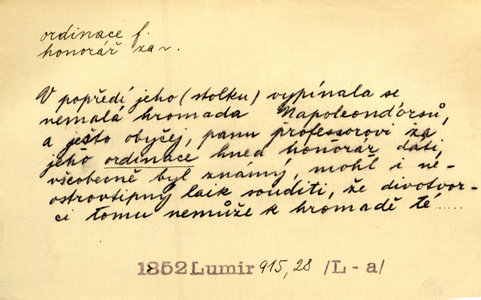 ordinace f.
honorář za ~.
V popředí jeho (stolku) vypínala se
nemalá hromada Napoleondórsů,
a ježto obyčej, panu professorovi za
jeho ordinace hned honorář dáti,
všeobecně byl známý, mohl i ne-
ostrovtipný laik souditi, že divotvor-
ci tomu nemůže k hromadě té......
1852 Lumír 915,28 /L - a/